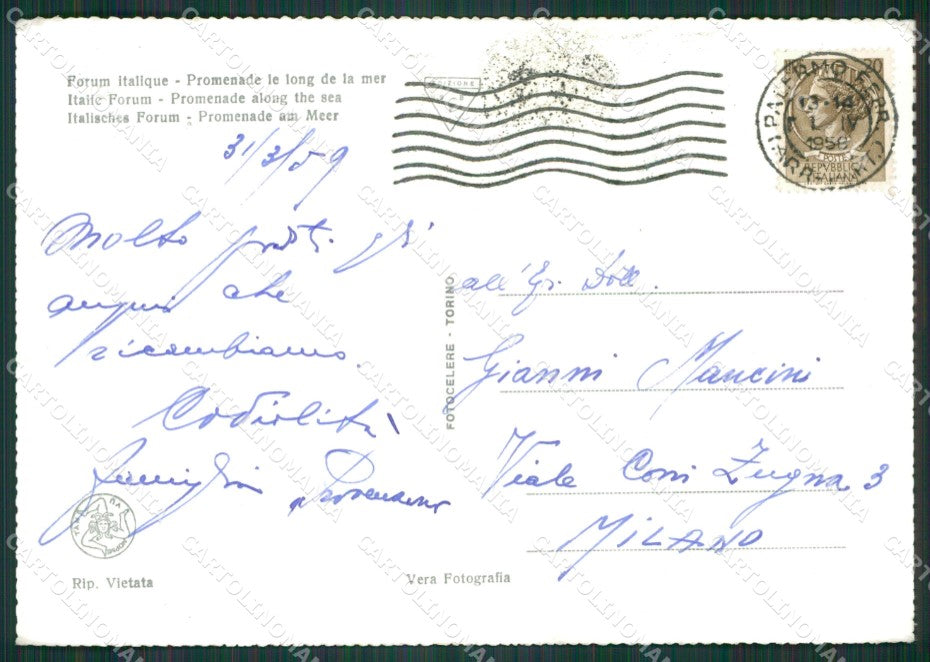 Forum italique - Promenade le long de la mer
Italic Forum - Promenade along the sea
Italisches Forum - Promenade am Meer
31/3/59
Molto gradit. gli
auguri che
ricambiamo.
Cordialità
famiglia Provenzano
Rip. Vietata
Vera Fotografia
FOTOCELERE - TORINO
PALERMO FERR.
13-14
IV
REPVBBLICA
ITALIANA
all'Eg. Dott.
Gianni Mancini
Viale Coni Zugna 3
MILANO
CARTOLINOMANIA